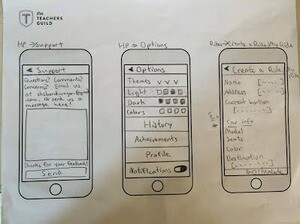 the
TEACHERS
GUILD
HP → Support
HP → Options
Support
Questions? Comments?
Concerns? Email us
or send us a
message here!
Thanks for your feedback!
Send
Options
Themes
Light
Dark
Colors
History
Achievements
Profile
Notifications
Create a Ride
Name
Address
Current location
Car info
Model
Seats
Color
Destination